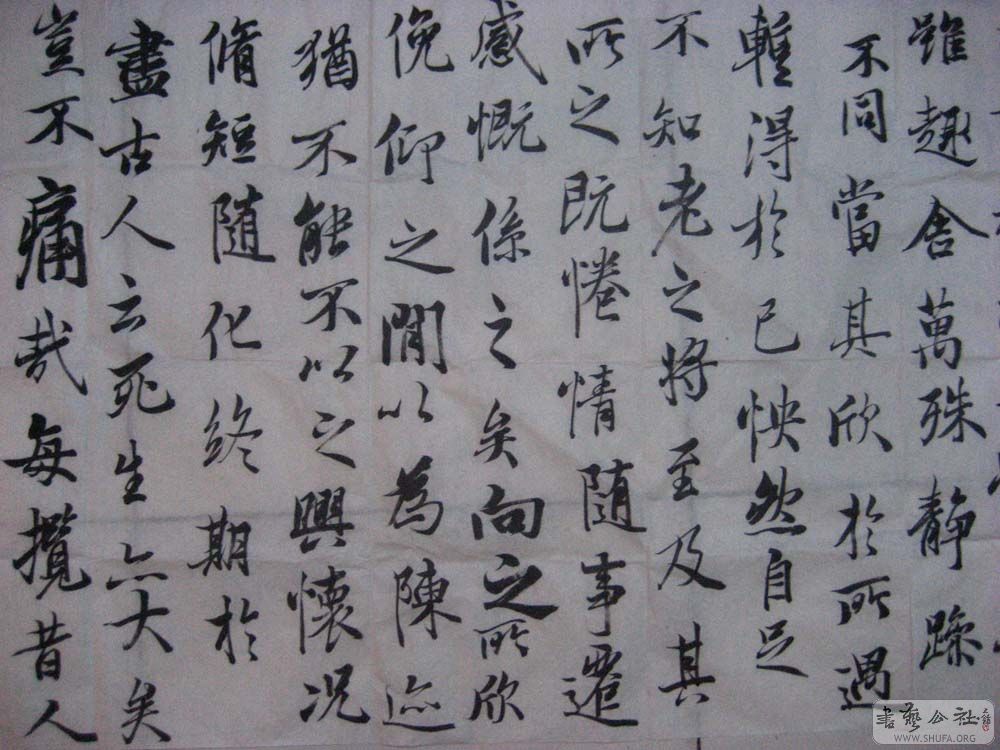 雖趣舍萬殊静躁
不同當其欣於所遇
暫得於己怏然自足
不知老之將至及其
所之既惓情随事遷
感慨係之矣向之所欣
俛仰之閒以為陳迹
猶不能不以之興懷况
脩短随化終期於
盡古人云死生亦大矣
豈不痛哉每攬昔人
書藝公社
WWW.SHUFA.ORG